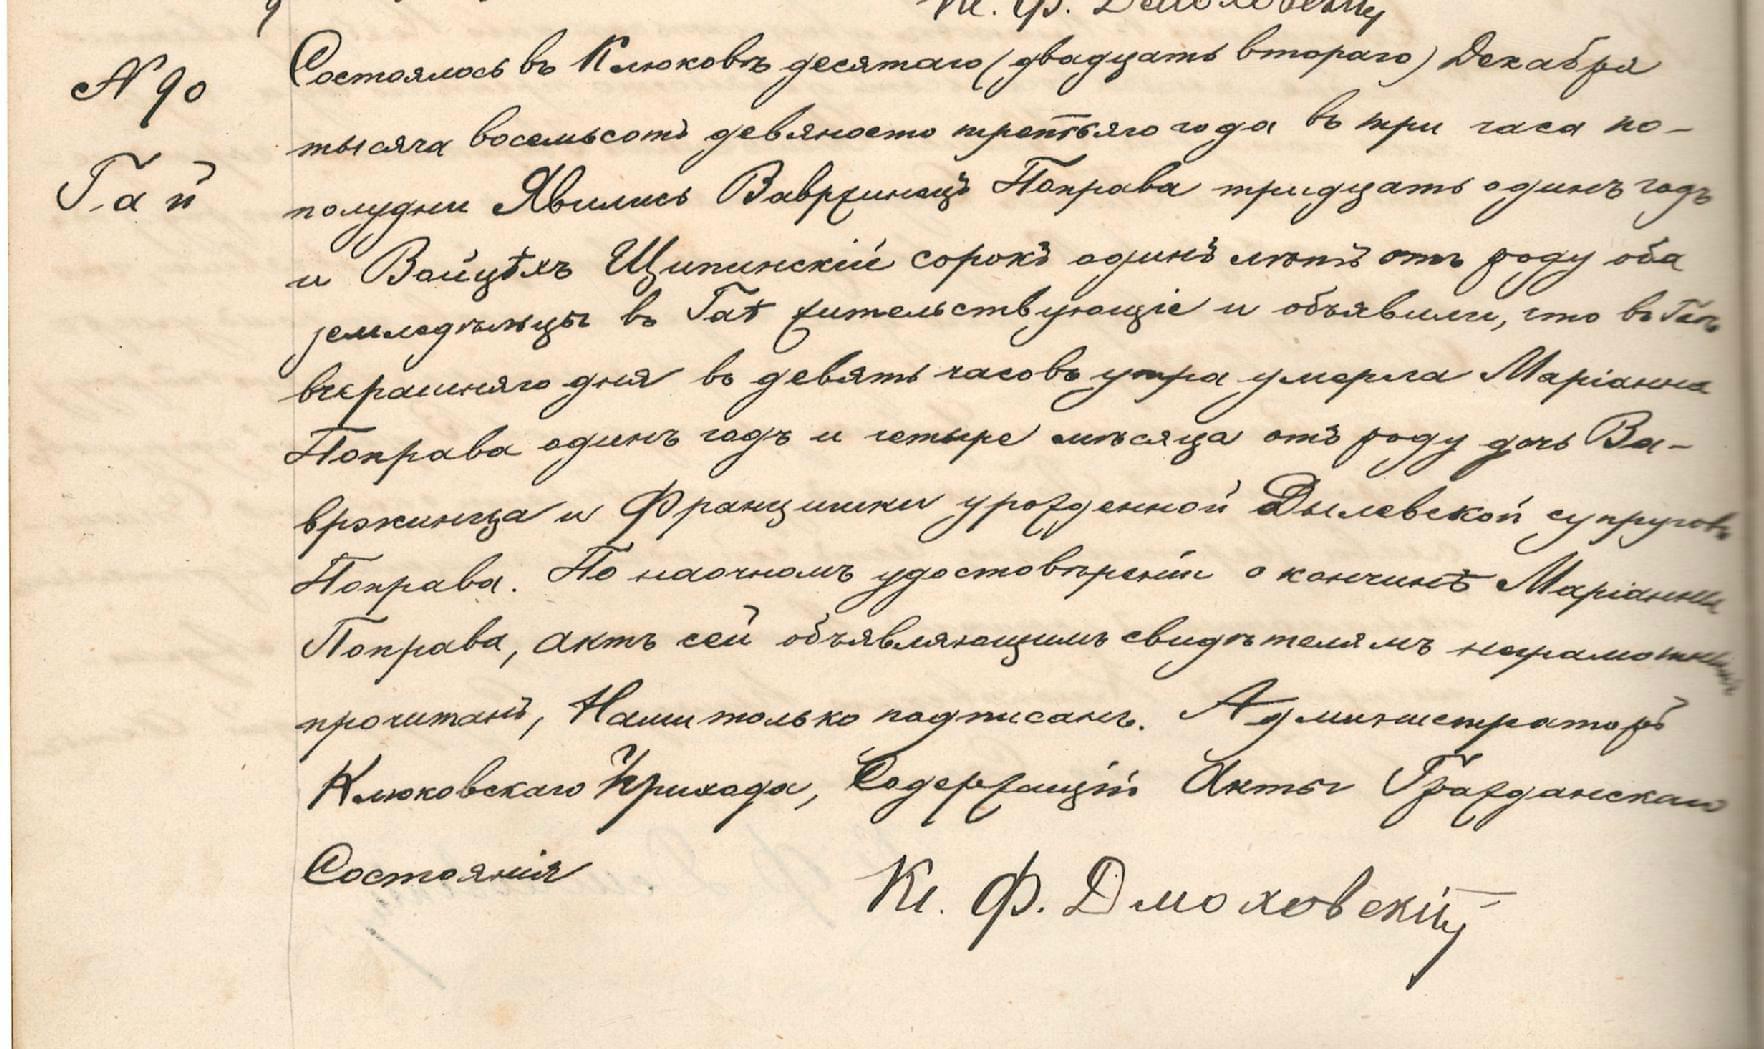 Кс. Ф. Дмоховскiй
№ 90
Гай
Состоялось въ Клюковѣ десятаго (двадцать втораго) Декабря
тысяча восемьсотъ девяносто третьяго года въ три часа по-
полудни Явились Вавржинецъ Поправа тридцать одинъ годъ
и Войцѣхъ Щипинскiй сорокъ одинъ лѣтъ отъ роду оба
земледѣльцы въ Гаѣ жительствующiе и объявили, что въ Гаѣ
вчерашняго дня въ девять часовъ утра умерла Марiанна
Поправа одинъ годъ и четыре мѣсяца отъ роду дочь Ва-
вржинца и Францишки урожденной Дылевской супруговъ
Поправа. По наочномъ удостовѣренiи о кончинѣ Марiанны
Поправа, актъ сей объявляющимъ свидѣтелямъ неграмотнымъ
прочитанъ, Нами только подписанъ. Администраторъ
Клюковскаго Прихода, Содержащiй Акты Гражданскаго
Состоянiя
Кс. Ф. Дмоховскiй